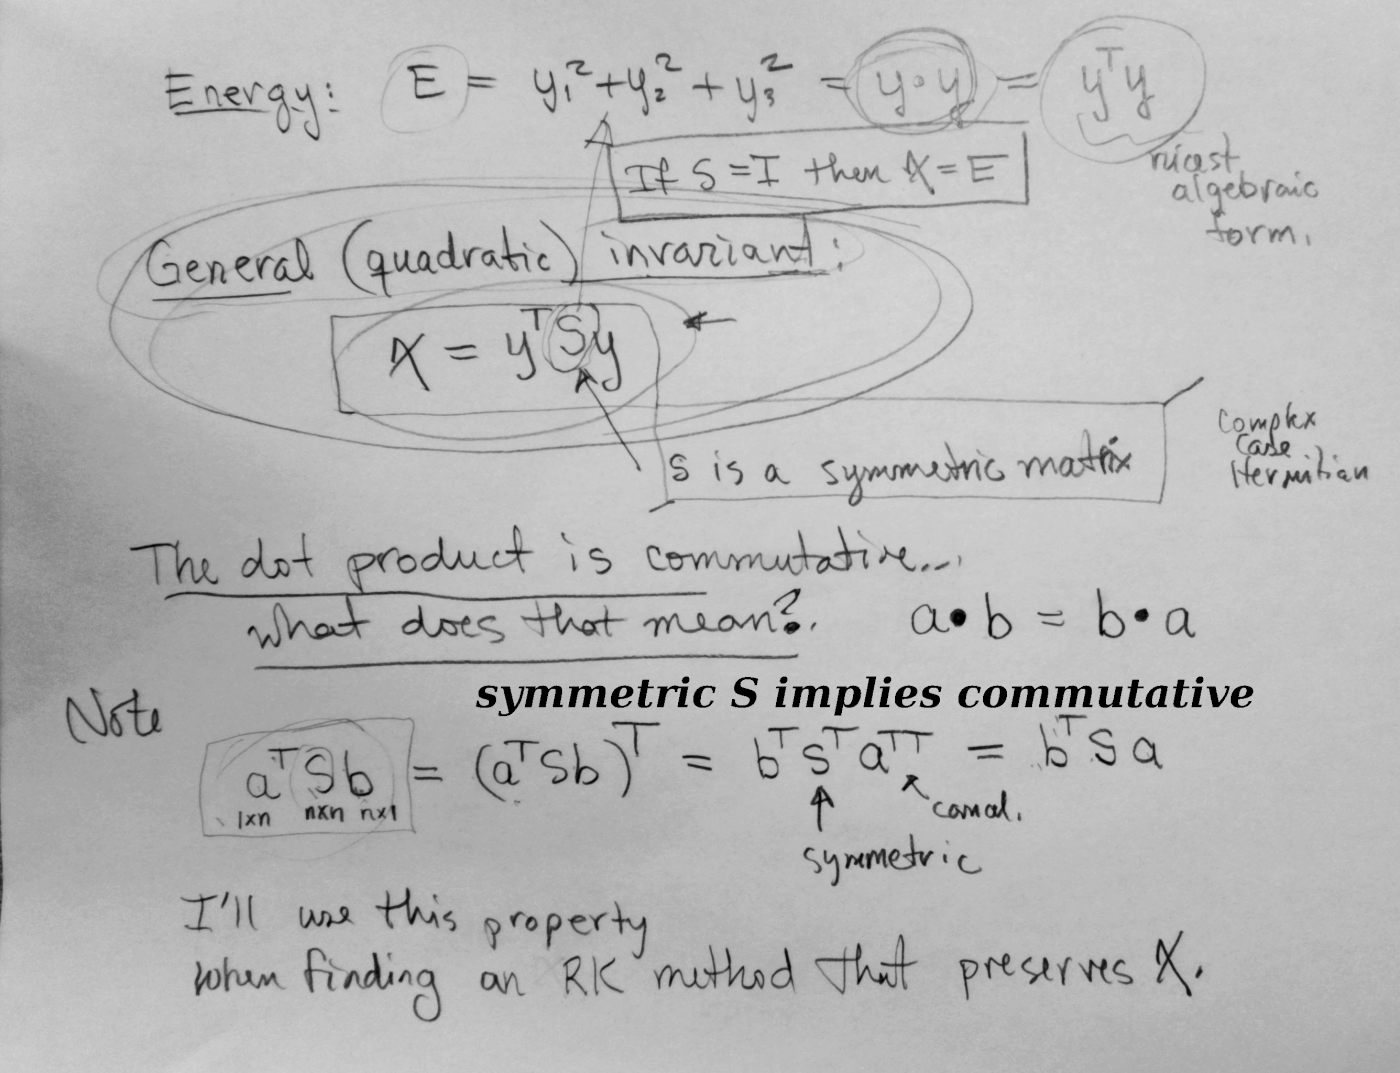 Energy: E = y₁² + y₂² + y₃² = y•y = yᵀy
nicest
algebraic
form.
If S = I then X = E
General (quadratic) invariant:
X = yᵀSy
S is a symmetric matrix
Complex
Case
Hermitian
The dot product is commutative...
what does that mean?.
a•b = b•a
symmetric S implies commutative
Note
aᵀSb = (aᵀSb)ᵀ = bᵀSᵀaᵀᵀ = bᵀSa
1xn nxn nx1
symmetric
I'll use this property
when finding an RK method that preserves X.